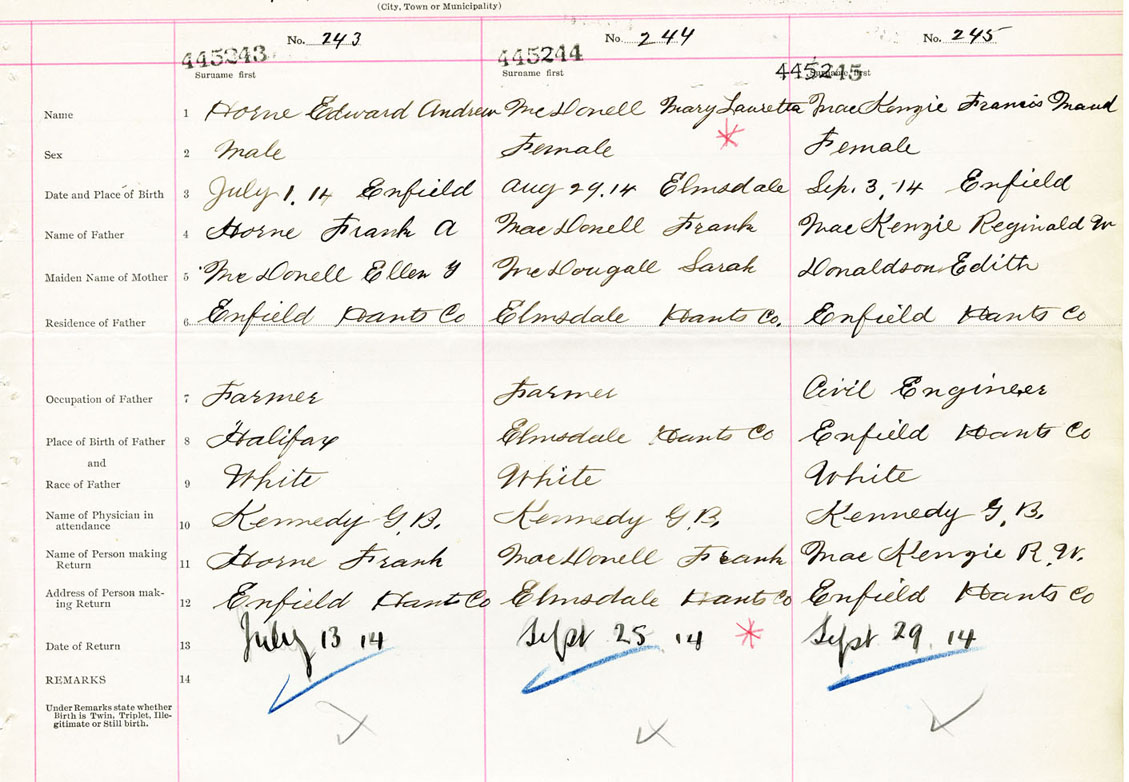 (City, Town or Municipality)
No. 243 No. 244 No. 245
445243 445244 445245
Surname first Surname first Surname first
Name 1 Horne Edward Andrew McDonell Mary Lauretta MacKenzie Francis Maud
Sex 2 Male Female Female
Date and Place of Birth 3 July 1. 14 Enfield Aug 29. 14 Elmsdale Sep. 3, 14 Enfield
Name of Father 4 Horne Frank A MacDonell Frank MacKenzie Reginald W
Maiden Name of Mother 5 McDonell Ellen Y McDougall Sarah Donaldson Edith
Residence of Father 6 Enfield Hants Co Elmsdale Hants Co. Enfield Hants Co
Occupation of Father 7 Farmer Farmer Civil Engineer
Place of Birth of Father 8 Halifax Elmsdale Hants Co Enfield Hants Co
and
Race of Father 9 White White White
Name of Physician in
attendance 10 Kennedy G. B. Kennedy G. B. Kennedy G. B.
Name of Person making
Return 11 Horne Frank MacDonell Frank MacKenzie R. W.
Address of Person mak-
ing Return 12 Enfield Hants Co Elmsdale Hants Co Enfield Hants Co
Date of Return 13 July 13 14 Sept 25 14 Sept 29. 14
REMARKS 14
Under Remarks state whether
Birth is Twin, Triplet, Ille-
gitimate or Still birth.